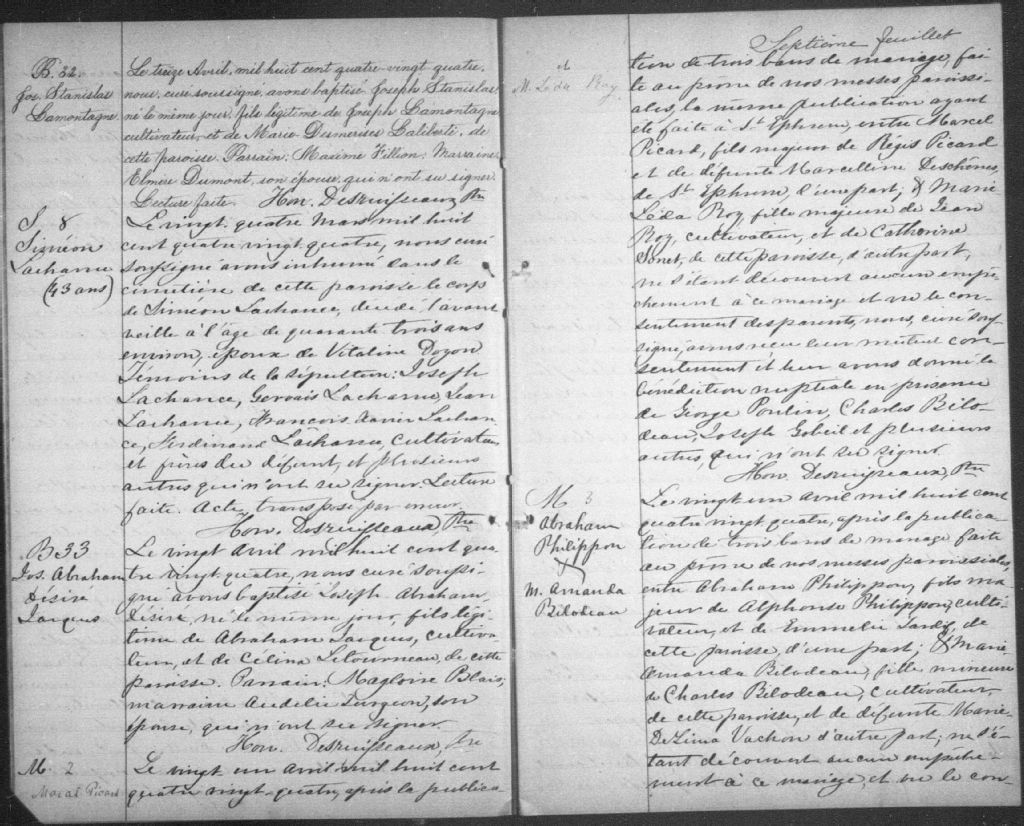 B. 32
Jos. Stanislas
Lamontagne
Le treize Avril, mil huit cent quatre-vingt quatre,
nous, curé soussigné, avons baptisé Joseph Stanislas
né le même jour, fils légitime de Joseph Lamontagne
cultivateur, et de Marie Desmerises Laliberté, de
cette paroisse. Parrain: Maxime Fillion; Marraine
Elmire Dumont, son épouse, qui n'ont su signer.
Lecture faite. Hon. Desruisseaux, Ptre
S. 8
Siméon
Lachance
(43 ans)
Le vingt quatre Mars, mil huit
cent quatre vingt quatre, nous curé
soussigné avons inhumé dans le
cimetière de cette paroisse le corps
de Siméon Lachance, décédé l'avant
veille à l'âge de quarante trois ans
environ, époux de Vitaline Doyon
Témoins de la sépulture: Joseph
Lachance, Gervais Lachance, Jean
Lachance, François Xavier Lachan-
ce, Ferdinand Lachance, cultivateurs
et frères du défunt, et plusieurs
autres qui n'ont su signer. Lecture
faite. Acte transposé par erreur.
Hon. Desruisseaux, Ptre
B 33
Jos. Abraham
Désiré
Jacques
Le vingt Avril mil huit cent qua-
tre vingt-quatre, nous curé soussi-
gné avons baptisé Joseph Abraham
Désiré, né le même jour, fils légi-
time de Abraham Jacques, cultiva-
teur, et de Célina Letourneau, de cette
paroisse. Parrain: Magloire Blais;
marraine Audélie Turgeon, son
épouse, qui n'ont su signer.
Hon. Desruisseaux, Ptre
M. 2
Marcel Picard
Le vingt un avril mil huit cent
quatre vingt-quatre, après la publica-
Septième feuillet
et
M. Léda Roy
tion de trois bans de mariage, fai-
te au prône de nos messes paroissi-
ales, la même publication ayant
été faite à St Ephrem, entre Marcel
Picard, fils majeur de Régis Picard
et de défunte Marcelline Deschênes,
de St Ephrem, d'une part; & Marie
Léda Roy, fille majeure de Jean
Roy, cultivateur, et de Catherine
de cette paroisse, d'autre part,
ne s'étant découvert aucun empê-
chement à ce mariage et vu le con-
sentement des parents, nous, curé sous-
signé, avons reçu leur mutuel con-
sentement et leur avons donné la
bénédiction nuptiale en présence
de George Poulin, Charles Bilo-
deau, Joseph Gobeil et plusieurs
autres qui n'ont su signer.
Hon. Desruisseaux, Ptre
M 3
Abraham
Philippon
&
M. Amanda
Bilodeau
Le vingt un avril mil huit cent
quatre vingt quatre, après la publica-
tion de trois bans de mariage faite
au prône de nos messes paroissiales,
entre Abraham Philippon, fils ma-
jeur de Alphonse Philippon, culti-
vateur, et de Emmélie de
cette paroisse, d'une part; & Marie
Amanda Bilodeau, fille mineure
de Charles Bilodeau, cultivateur,
de cette paroisse, et de défunte Marie
DeLima Vachon d'autre part; ne s'é-
tant découvert aucun empêche-
ment à ce mariage, et vu le con-